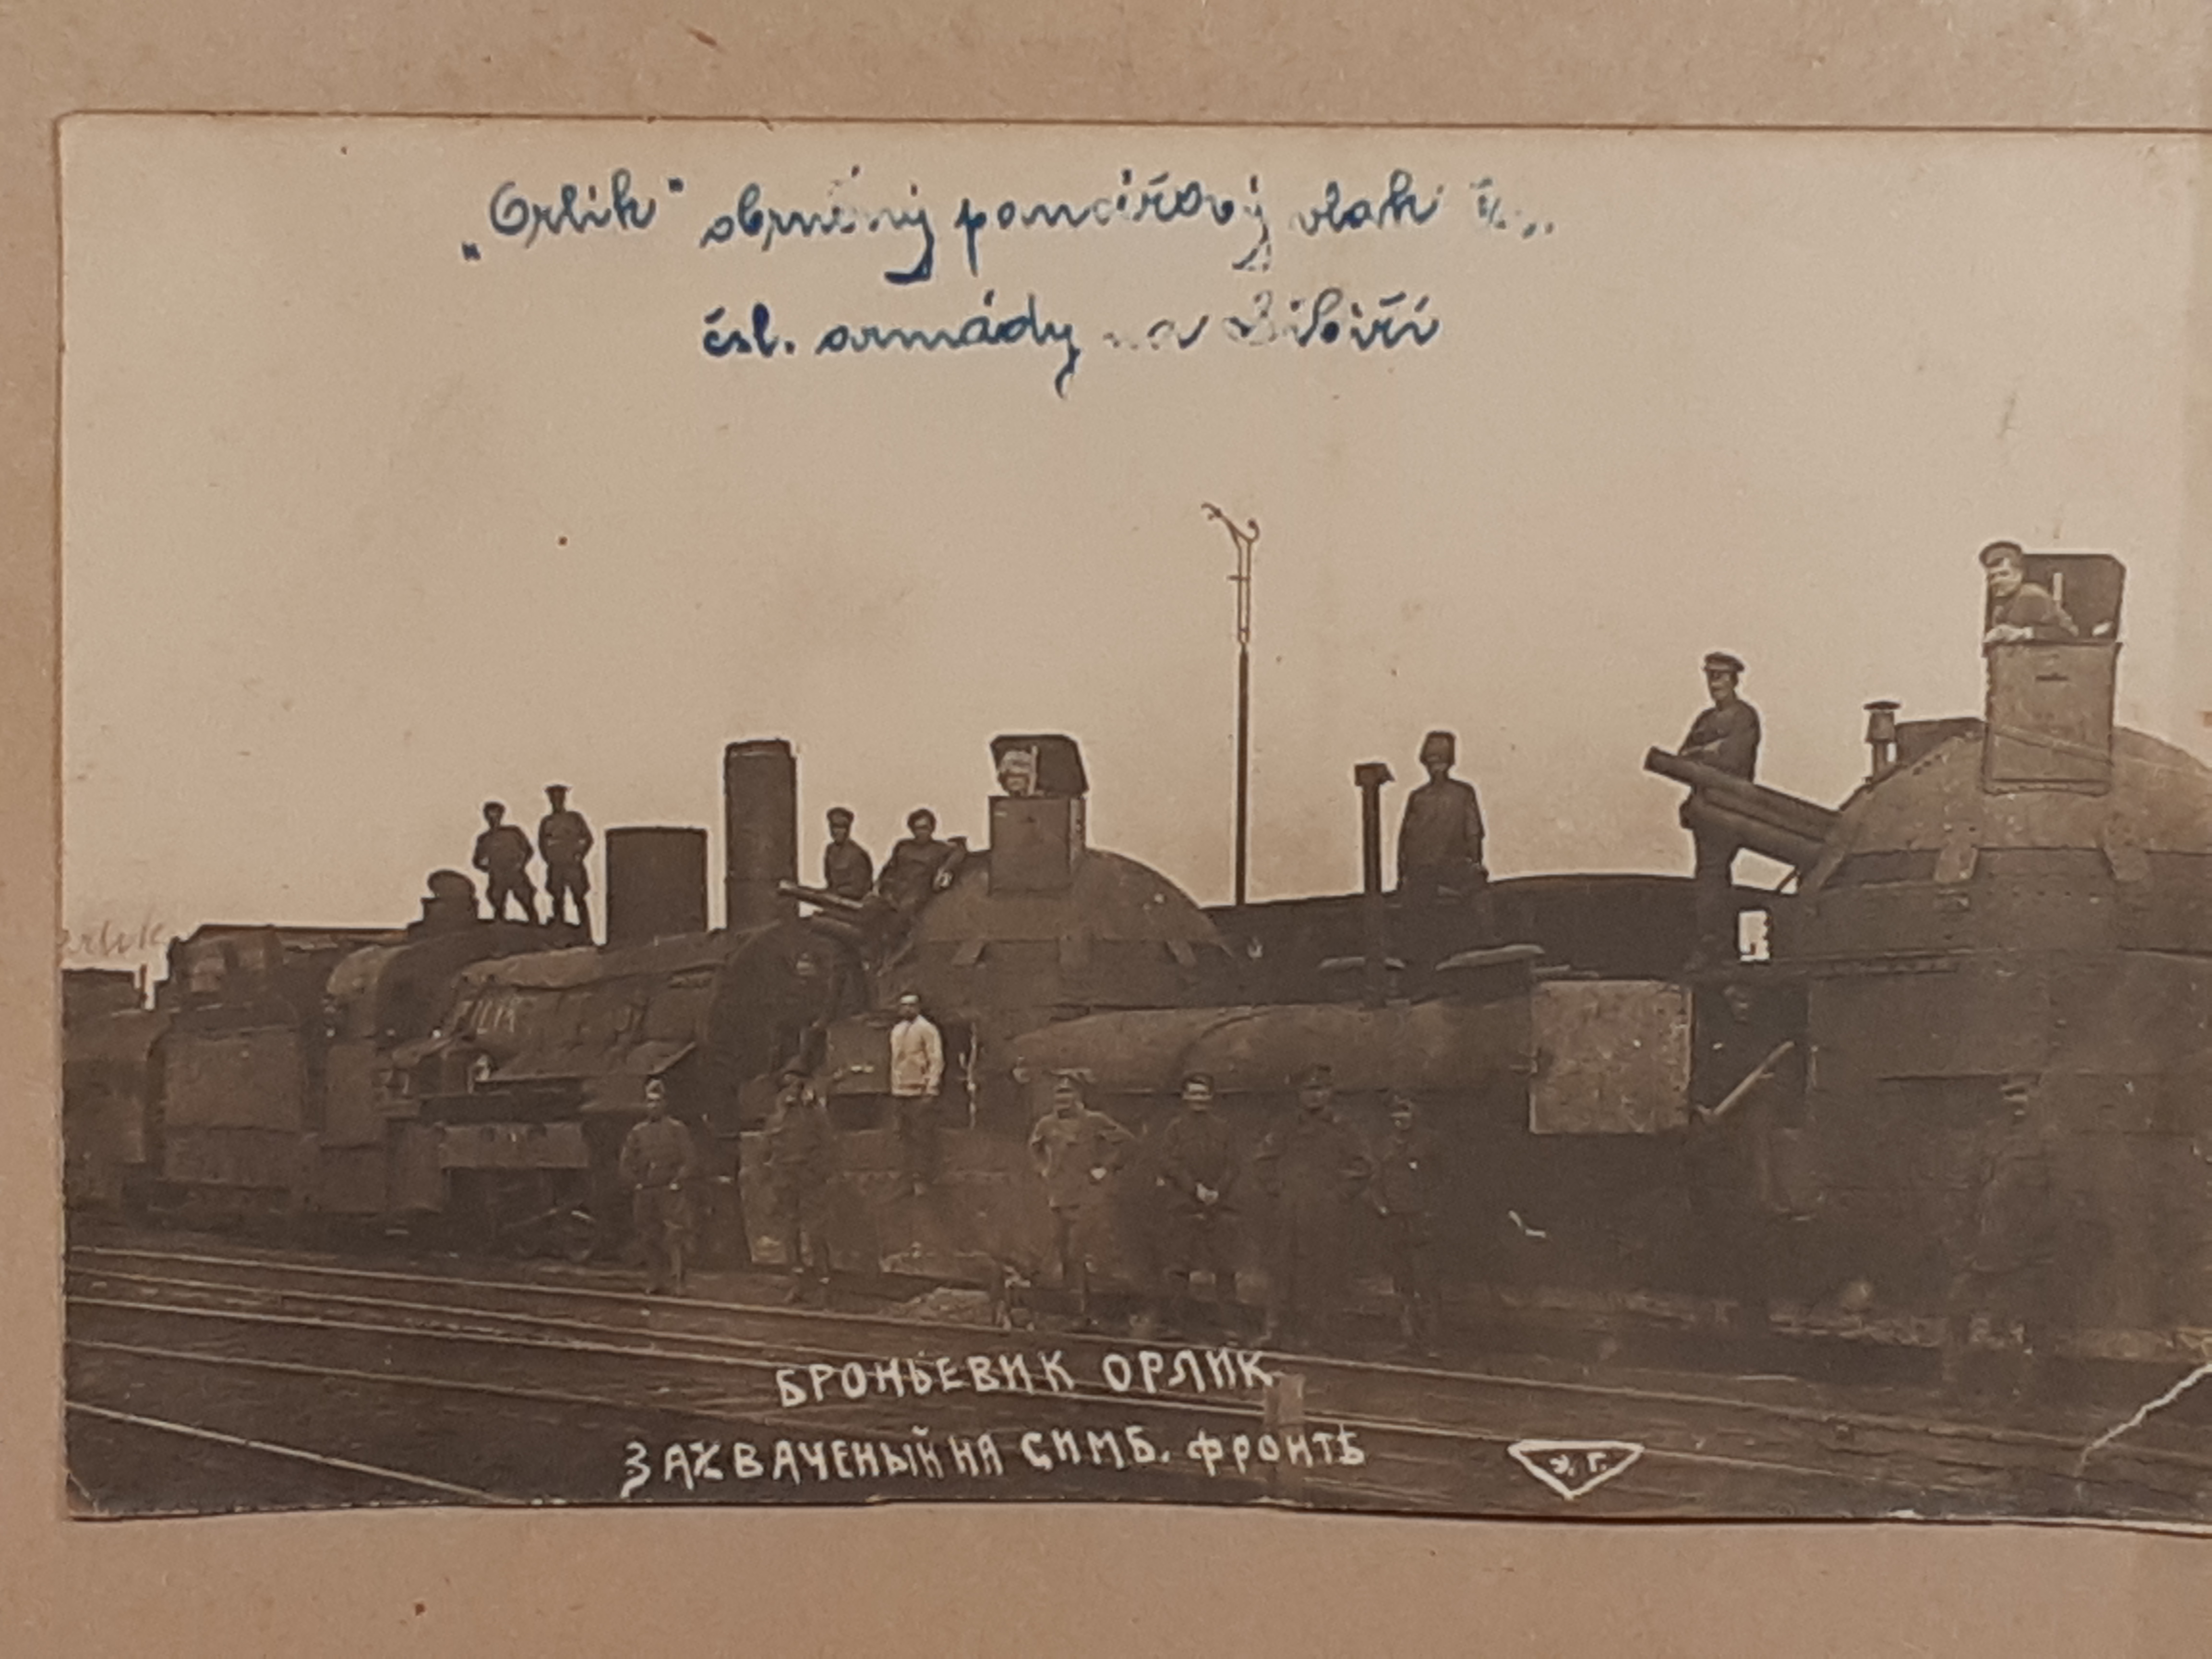 „Orlik" obrněný pancířový vlak
čsl. armády na Sibiři
orlik
БРОНЬЕВИК ОРЛИК
ЗАХВАЧЕНЫЙ НА СИМБ. ФРОНТѢ
Э. Г.